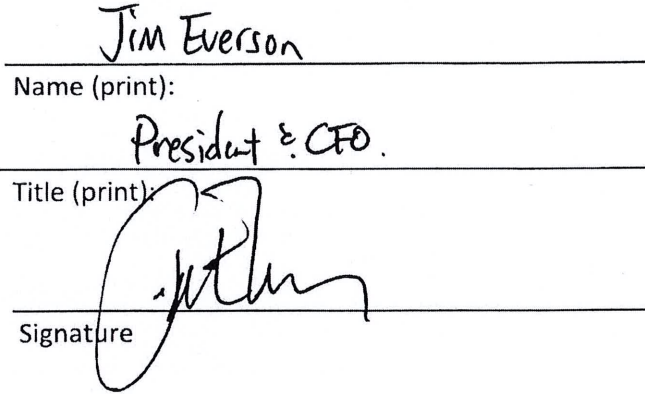 Jim Everson
Name (print):
President & CFO.
Title (print):
Signature